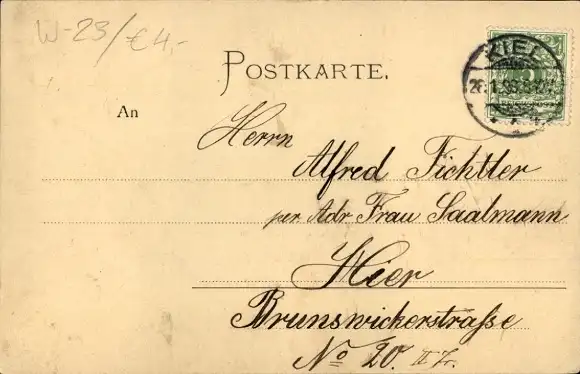 W-23/€4,-
POSTKARTE.
KIEL
An
Herrn
Alfred Fichtler
per Adr Frau Saalmann
Hier
Brunswickerstraße
No 20. II